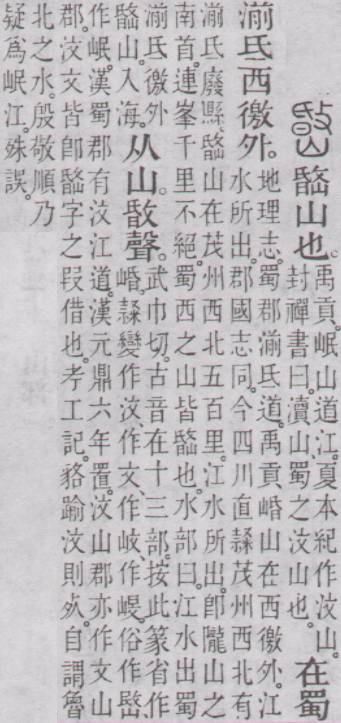 㟭山也。禹貢。岷山道江。夏本紀作汶山。
封禪書曰。瀆山蜀之汶山也。在蜀
湔氐西徼外。地理志。蜀郡湔氐道。禹貢崏山在西徼外。江
水所出。郡國志同。今四川直隸茂州西北有
湔氐廢縣。㟭山在茂州西北五百里。江水所出。卽隴山之
南首。連峯千里不絕。蜀西之山皆㟭也。水部曰。江水出蜀
湔氐徼外
㟭山。入海。从山。敯聲。武巾切。古音在十三部。按此篆省作
崏。隸變作汶、作文、作岐、作㟩。俗作
作岷。漢蜀郡有汶江道。漢元鼎六年置。汶山郡亦作文山
郡。汶文皆卽㟭字之叚借也。考工記。貉踰汶則死。自謂魯
北之水。殷敬順乃
疑爲岷江。殊誤。